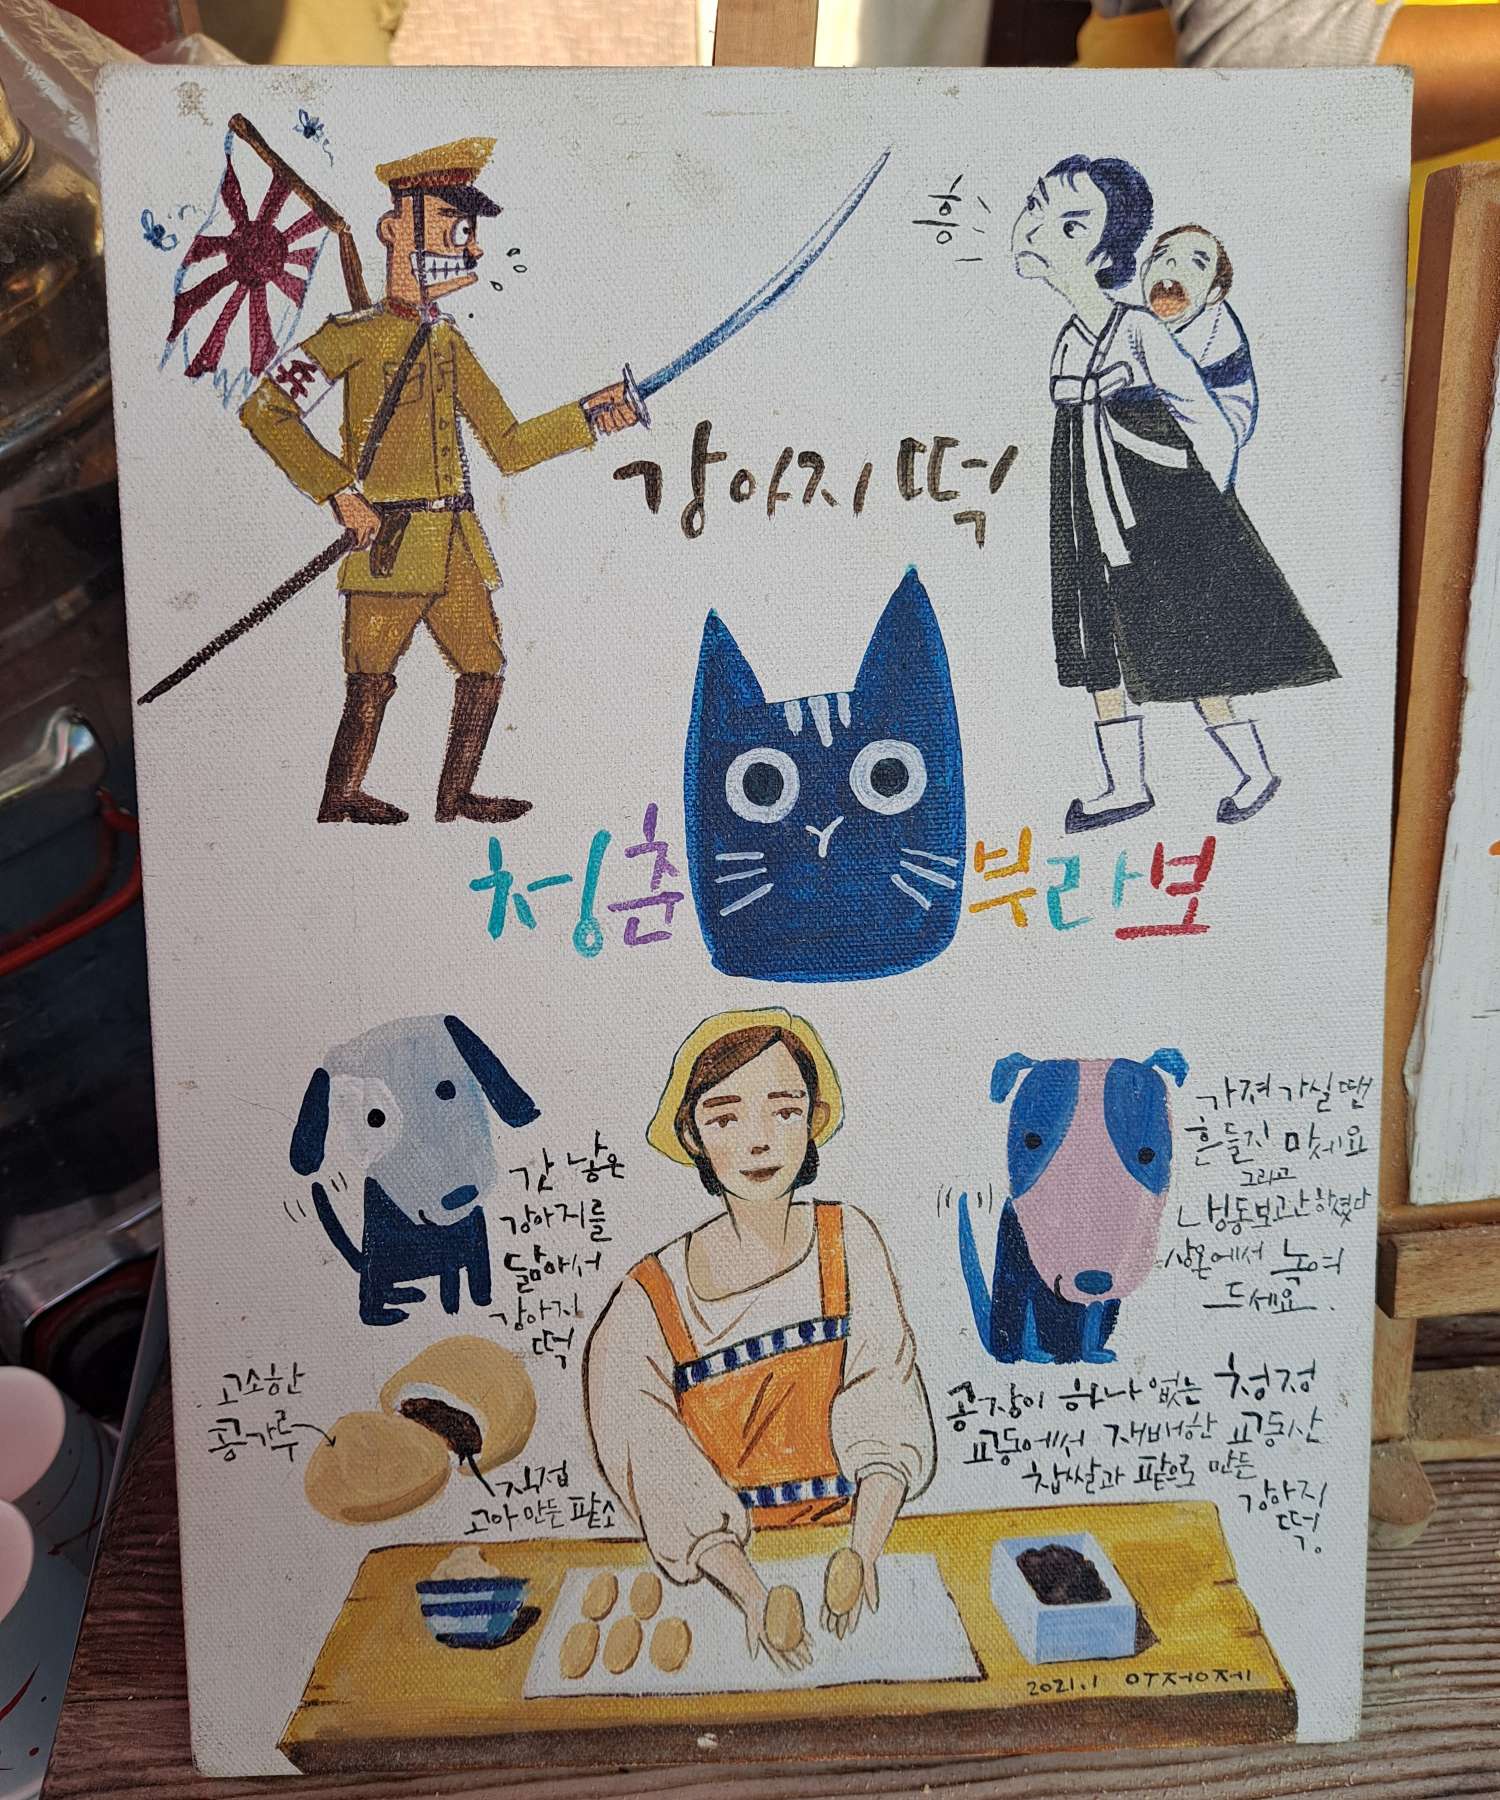 흥
강아지 떡
청춘 부라보
갓 낳은
강아지를
닮아서
강아지
떡
가져 가실 땐
흔들진 마세요
그리고
냉동보관하였다
상온에서 녹여
드세요.
고소한
콩가루
직접
고아 만든 팥소
공장이 하나 없는 청정
교동에서 재배한 교동산
찹쌀과 팥으로 만든
강아지
떡.
2021.1